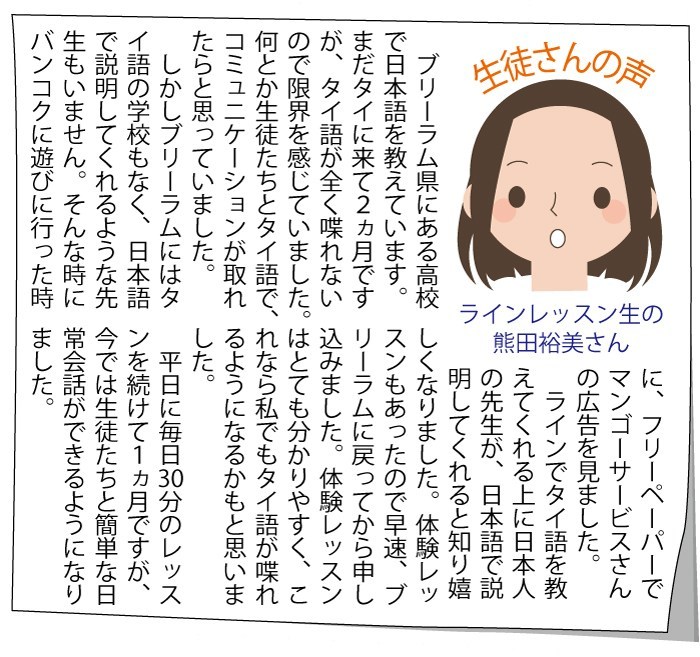 生徒さんの声
ラインレッスン生の
熊田裕美さん
ブリーラム県にある高校
で日本語を教えています。
まだタイに来て2ヵ月です
が、タイ語が全く喋れない
ので限界を感じていました。
何とか生徒たちとタイ語で、
コミュニケーションが取れ
たらと思っていました。
しかしブリーラムにはタ
イ語の学校もなく、日本語
で説明してくれるような先
生もいません。そんな時に
バンコクに遊びに行った時
に、フリーペーパーで
マンゴーサービスさん
の広告を見ました。
ラインでタイ語を教
えてくれる上に日本人
の先生が、日本語で説
明してくれると知り嬉
しくなりました。体験レッ
スンもあったので早速、ブ
リーラムに戻ってから申し
込みました。体験レッスン
はとても分かりやすく、こ
れなら私でもタイ語が喋れ
るようになるかもと思いま
した。
平日に毎日30分のレッス
ンを続けて1ヵ月ですが、
今では生徒たちと簡単な日
常会話ができるようになり
ました。